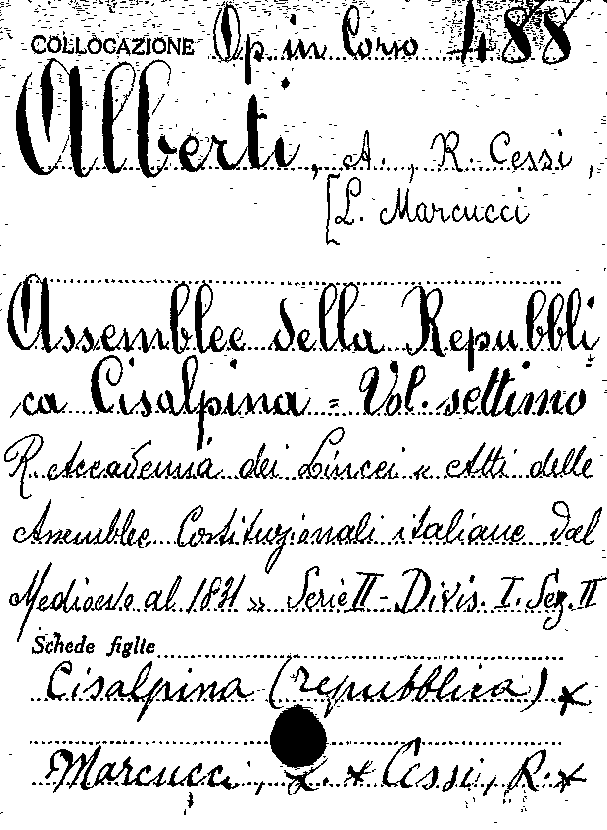 COLLOCAZIONE Op. in Corso 488
Alberti, A., R. Cessi,
[L. Marcucci
Assemblee della Repubbli
ca Cisalpina = Vol. settimo
R. Accademia dei Lincei « Atti delle
Assemblee Costituzionali italiane dal
Medioevo al 1831 » Serie II - Divis. I. Sez. II
Schede figlie
Cisalpina (repubblica) x
Marcucci, L. x Cessi, R. x